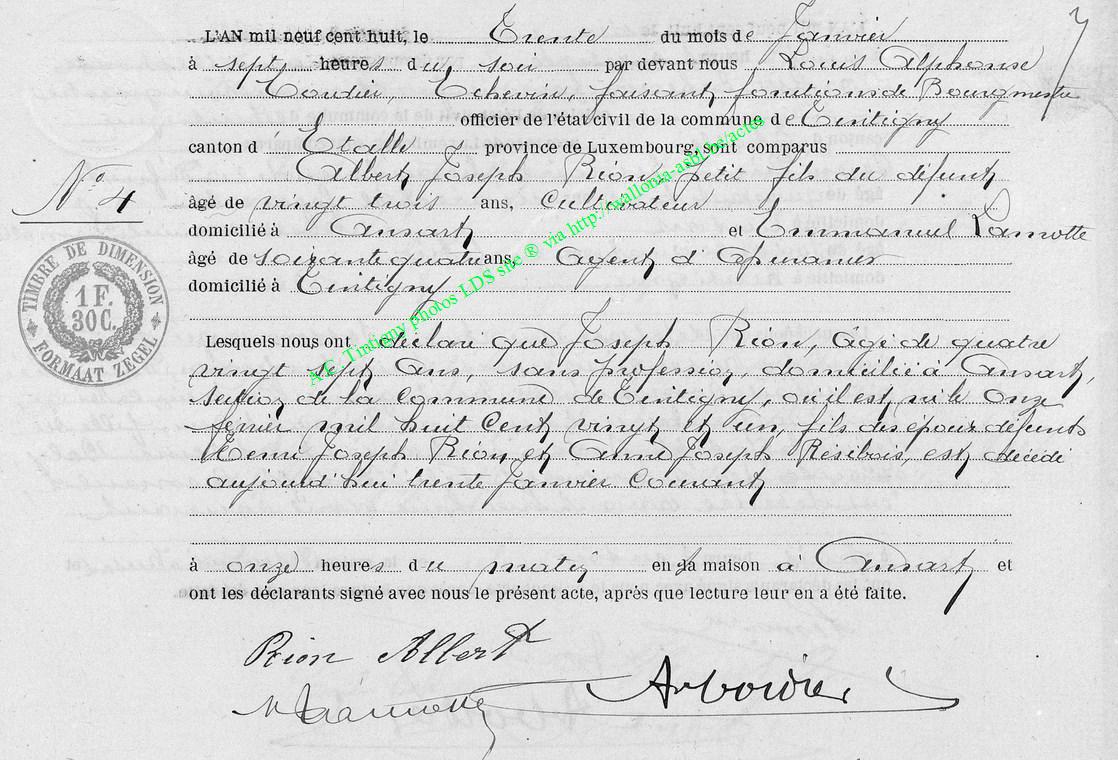 7
L'AN mil neuf cent huit, le Trente du mois de Janvier
à sept heures du soir par devant nous Louis Alphonse
Échevin, faisant fonctions de Bourgmestre
officier de l'état civil de la commune de Tintigny
canton d' Etalle province de Luxembourg, sont comparus
Albert Joseph Rion, petit fils du défunt
N° 4
âgé de vingt trois ans, Cultivateur
domicilié à Ansart et Emmanuel Lamotte
âgé de soixante quatre ans, agent d'
domicilié à Tintigny
TIMBRE DE DIMENSION
1 F.
30 C.
FORMAAT ZEGEL
Lesquels nous ont déclaré que Joseph Rion, âgé de quatre
vingt sept ans, sans profession, domicilié à Ansart,
section de la Commune de Tintigny, où il est né le onze
février mil huit cent vingt et un, fils des époux défunts
Henri Joseph Rion et Anne Joseph Résibois, est décédé
aujourd'hui trente Janvier Courant
à onze heures du matin en sa maison à Ansart et
ont les déclarants signé avec nous le présent acte, après que lecture leur en a été faite.
Rion Albert
A.C. Tintigny photos LDS site ® via http://wallonia-asbl.be/actes